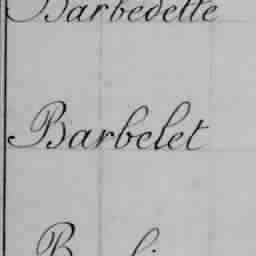 Barbedette
Barbelet